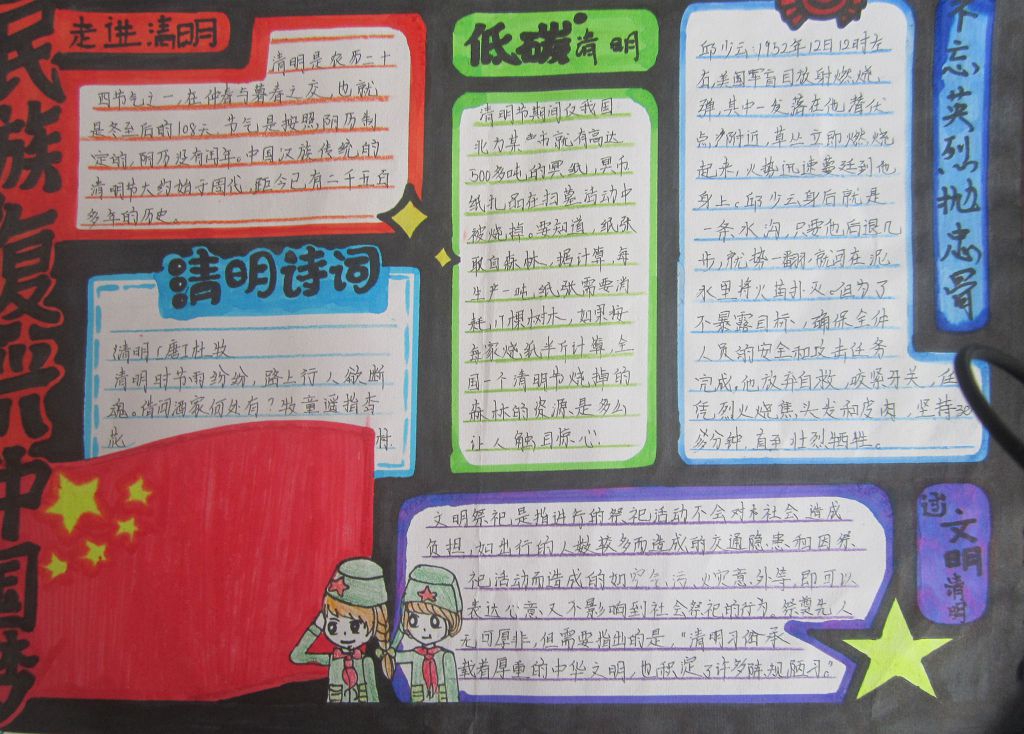 民族复兴中国梦
走进清明
清明是农历二十
四节气之一,在仲春与暮春之交,也就
是冬至后的108天。节气是按照阴历制
定的,阴历没有闰年。中国汉族传统的
清明节大约始于周代,距今已有二千五百
多年的历史。
清明诗词
清明[唐]杜牧
清明时节雨纷纷,路上行人欲断
魂。借问酒家何处有?牧童遥指杏
花
村
低碳清明
清明节期间仅我国
北方某些市就有高达
500多吨的冥纸,冥币
纸扎品在扫墓活动中
被烧掉。要知道,纸张
取自森林,据计算,每
生产一吨纸张需要消
耗17棵树木,如果按
每家烧纸半斤计算,全
国一个清明节烧掉的
森林的资源是多么
让人触目惊心.
邱少云:1952年12日12时左
右,美国军盲目放射燃烧
弹,其中一发落在他潜伏
点附近,草丛立即燃烧
起来,火势迅速蔓延到他
身上。邱少云身后就是
一条水沟,只要他后退几
步,就势一翻就可在泥
水里将火苗扑灭。但为了
不暴露目标,确保全体
人员的安全和攻击任务
完成,他放弃自救,咬紧牙关,任
凭烈火烧焦头发和皮肉,坚持30
多分钟,直至壮烈牺牲。
不忘英烈抛忠骨
文明祭祀,是指进行的祭祀活动不会对本社会造成
负担,如出行的人数较多而造成的交通隐患和因祭
祀活动而造成的如空气污,火灾意外等,即可以
表达心意又不影响到社会祭祀的行为。祭尊先人
无可厚非,但需要指出的是,“清明习俗承
载着厚重的中华文明,也积淀了许多陈规陋习。”
过文明清明